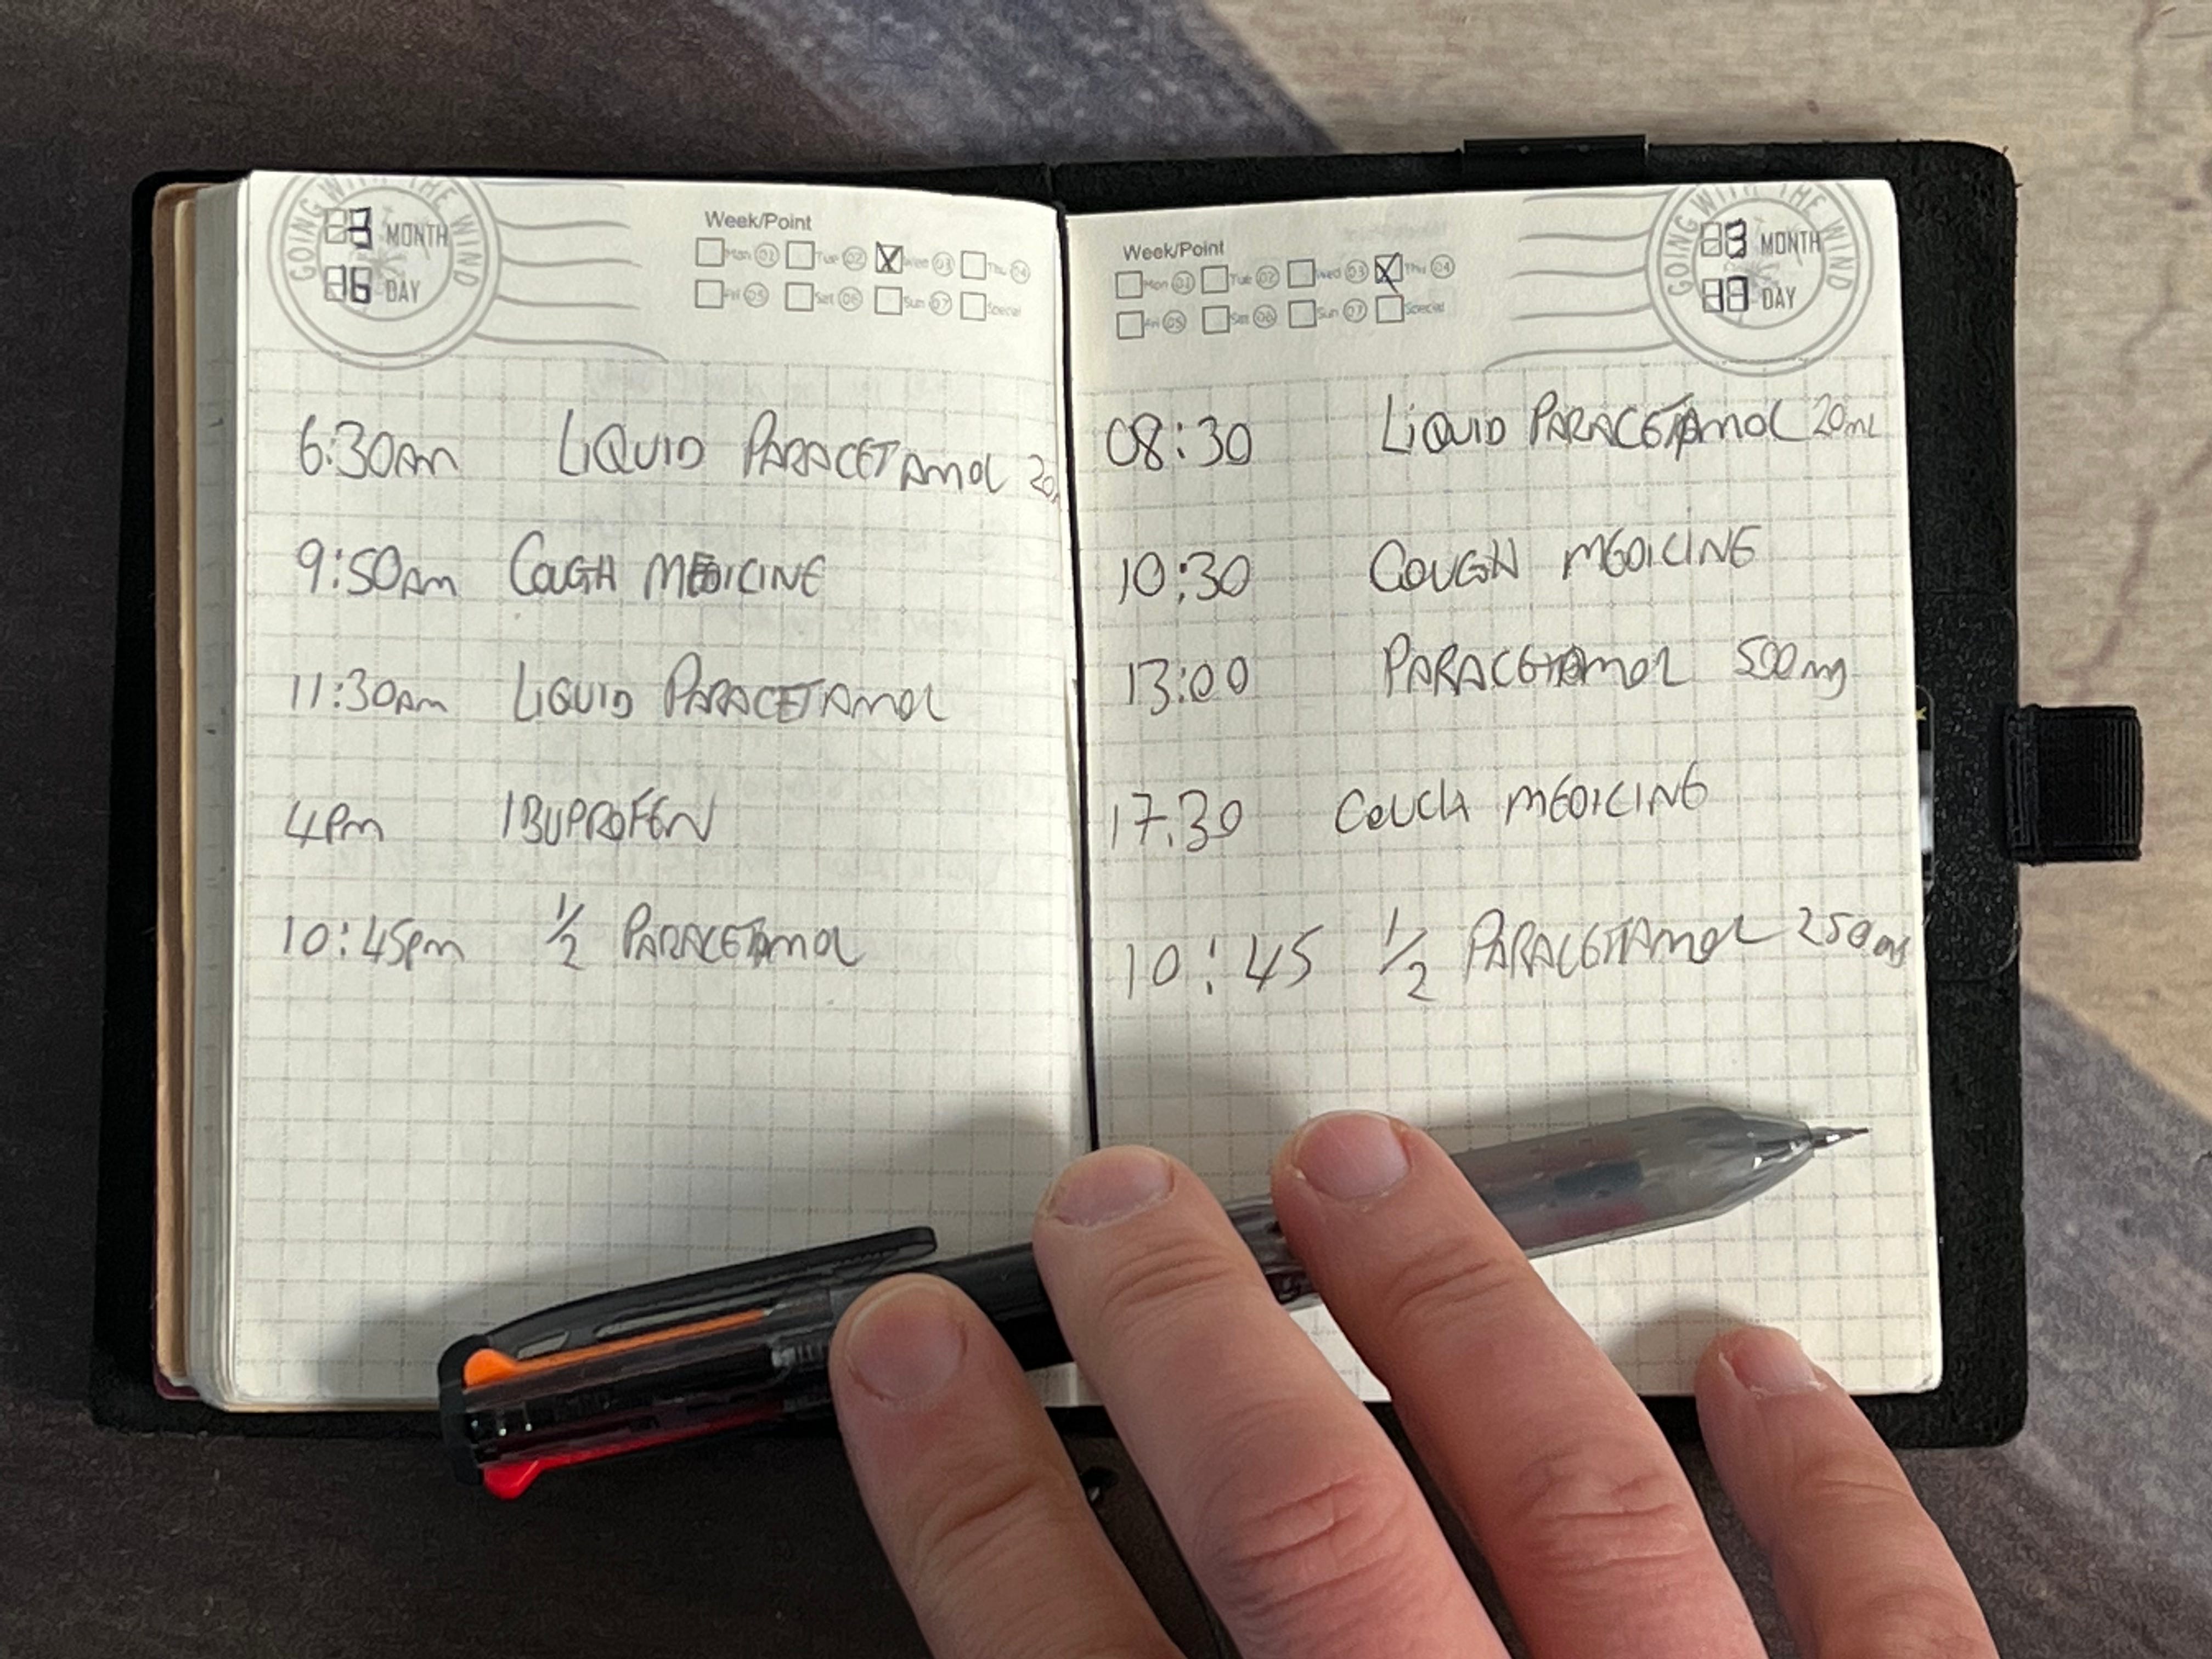 GOING WITH THE WIND
3 MONTH
16 DAY
Week/Point
Mon 01 Tue 02 Wed 03 Thu 04
Fri 05 Sat 06 Sun 07 Special
6:30am LIQUID PARACETAMOL 20
9:50am COUGH MEDICINE
11:30am LIQUID PARACETAMOL
4pm IBUPROFEN
10:45pm 1/2 PARACETAMOL
Week/Point
Mon 01 Tue 02 Wed 03 Thu 04
Fri 05 Sat 06 Sun 07 Special
GOING WITH THE WIND
3 MONTH
DAY
08:30 LIQUID PARACETAMOL 20ml
10:30 COUGH MEDICINE
13:00 PARACETAMOL 500mg
17.30 COUGH MEDICINE
10:45 1/2 PARACETAMOL 250mg